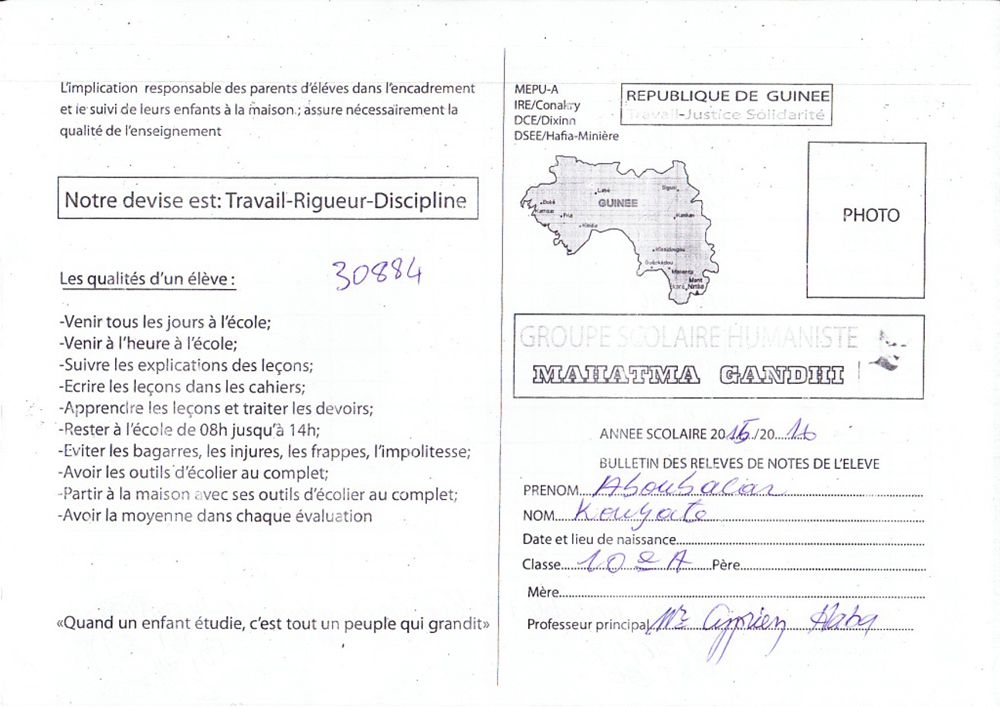 L'implication responsable des parents d'éléves dans l'encadrement
et le suivi de leurs enfants à la maison ; assure nécessairement la
qualité de l'enseignement
Notre devise est: Travail-Rigueur-Discipline
Les qualités d'un élève :
30884
-Venir tous les jours à l'école;
-Venir à l'heure à l'école;
-Suivre les explications des leçons;
-Ecrire les leçons dans les cahiers;
-Apprendre les leçons et traiter les devoirs;
-Rester à l'école de 08h jusqu'à 14h;
-Eviter les bagarres, les injures, les frappes, l'impolitesse;
-Avoir les outils d'écolier au complet;
-Partir à la maison avec ses outils d'écolier au complet;
-Avoir la moyenne dans chaque évaluation
«Quand un enfant étudie, c'est tout un peuple qui grandit»
MEPU-A
IRE/Conakry
DCE/Dixinn
DSEE/Hafia-Minière
REPUBLIQUE DE GUINEE
Travail-Justice Solidarité
Labé
Siguiri
Boké
GUINEE
Kamsar
Fria
Kankan
Kindia
Kissidougou
Guékédou
Macenta
Mont
Nimba
PHOTO
GROUPE SCOLAIRE HUMANISTE
MAHATMA GANDHI
ANNEE SCOLAIRE 2015/2016
BULLETIN DES RELEVES DE NOTES DE L'ELEVE
PRENOM Aboubacar
NOM Kouyate
Date et lieu de naissance
Classe 10e A Père
Mère
Professeur principal Mr Cyprien Haba